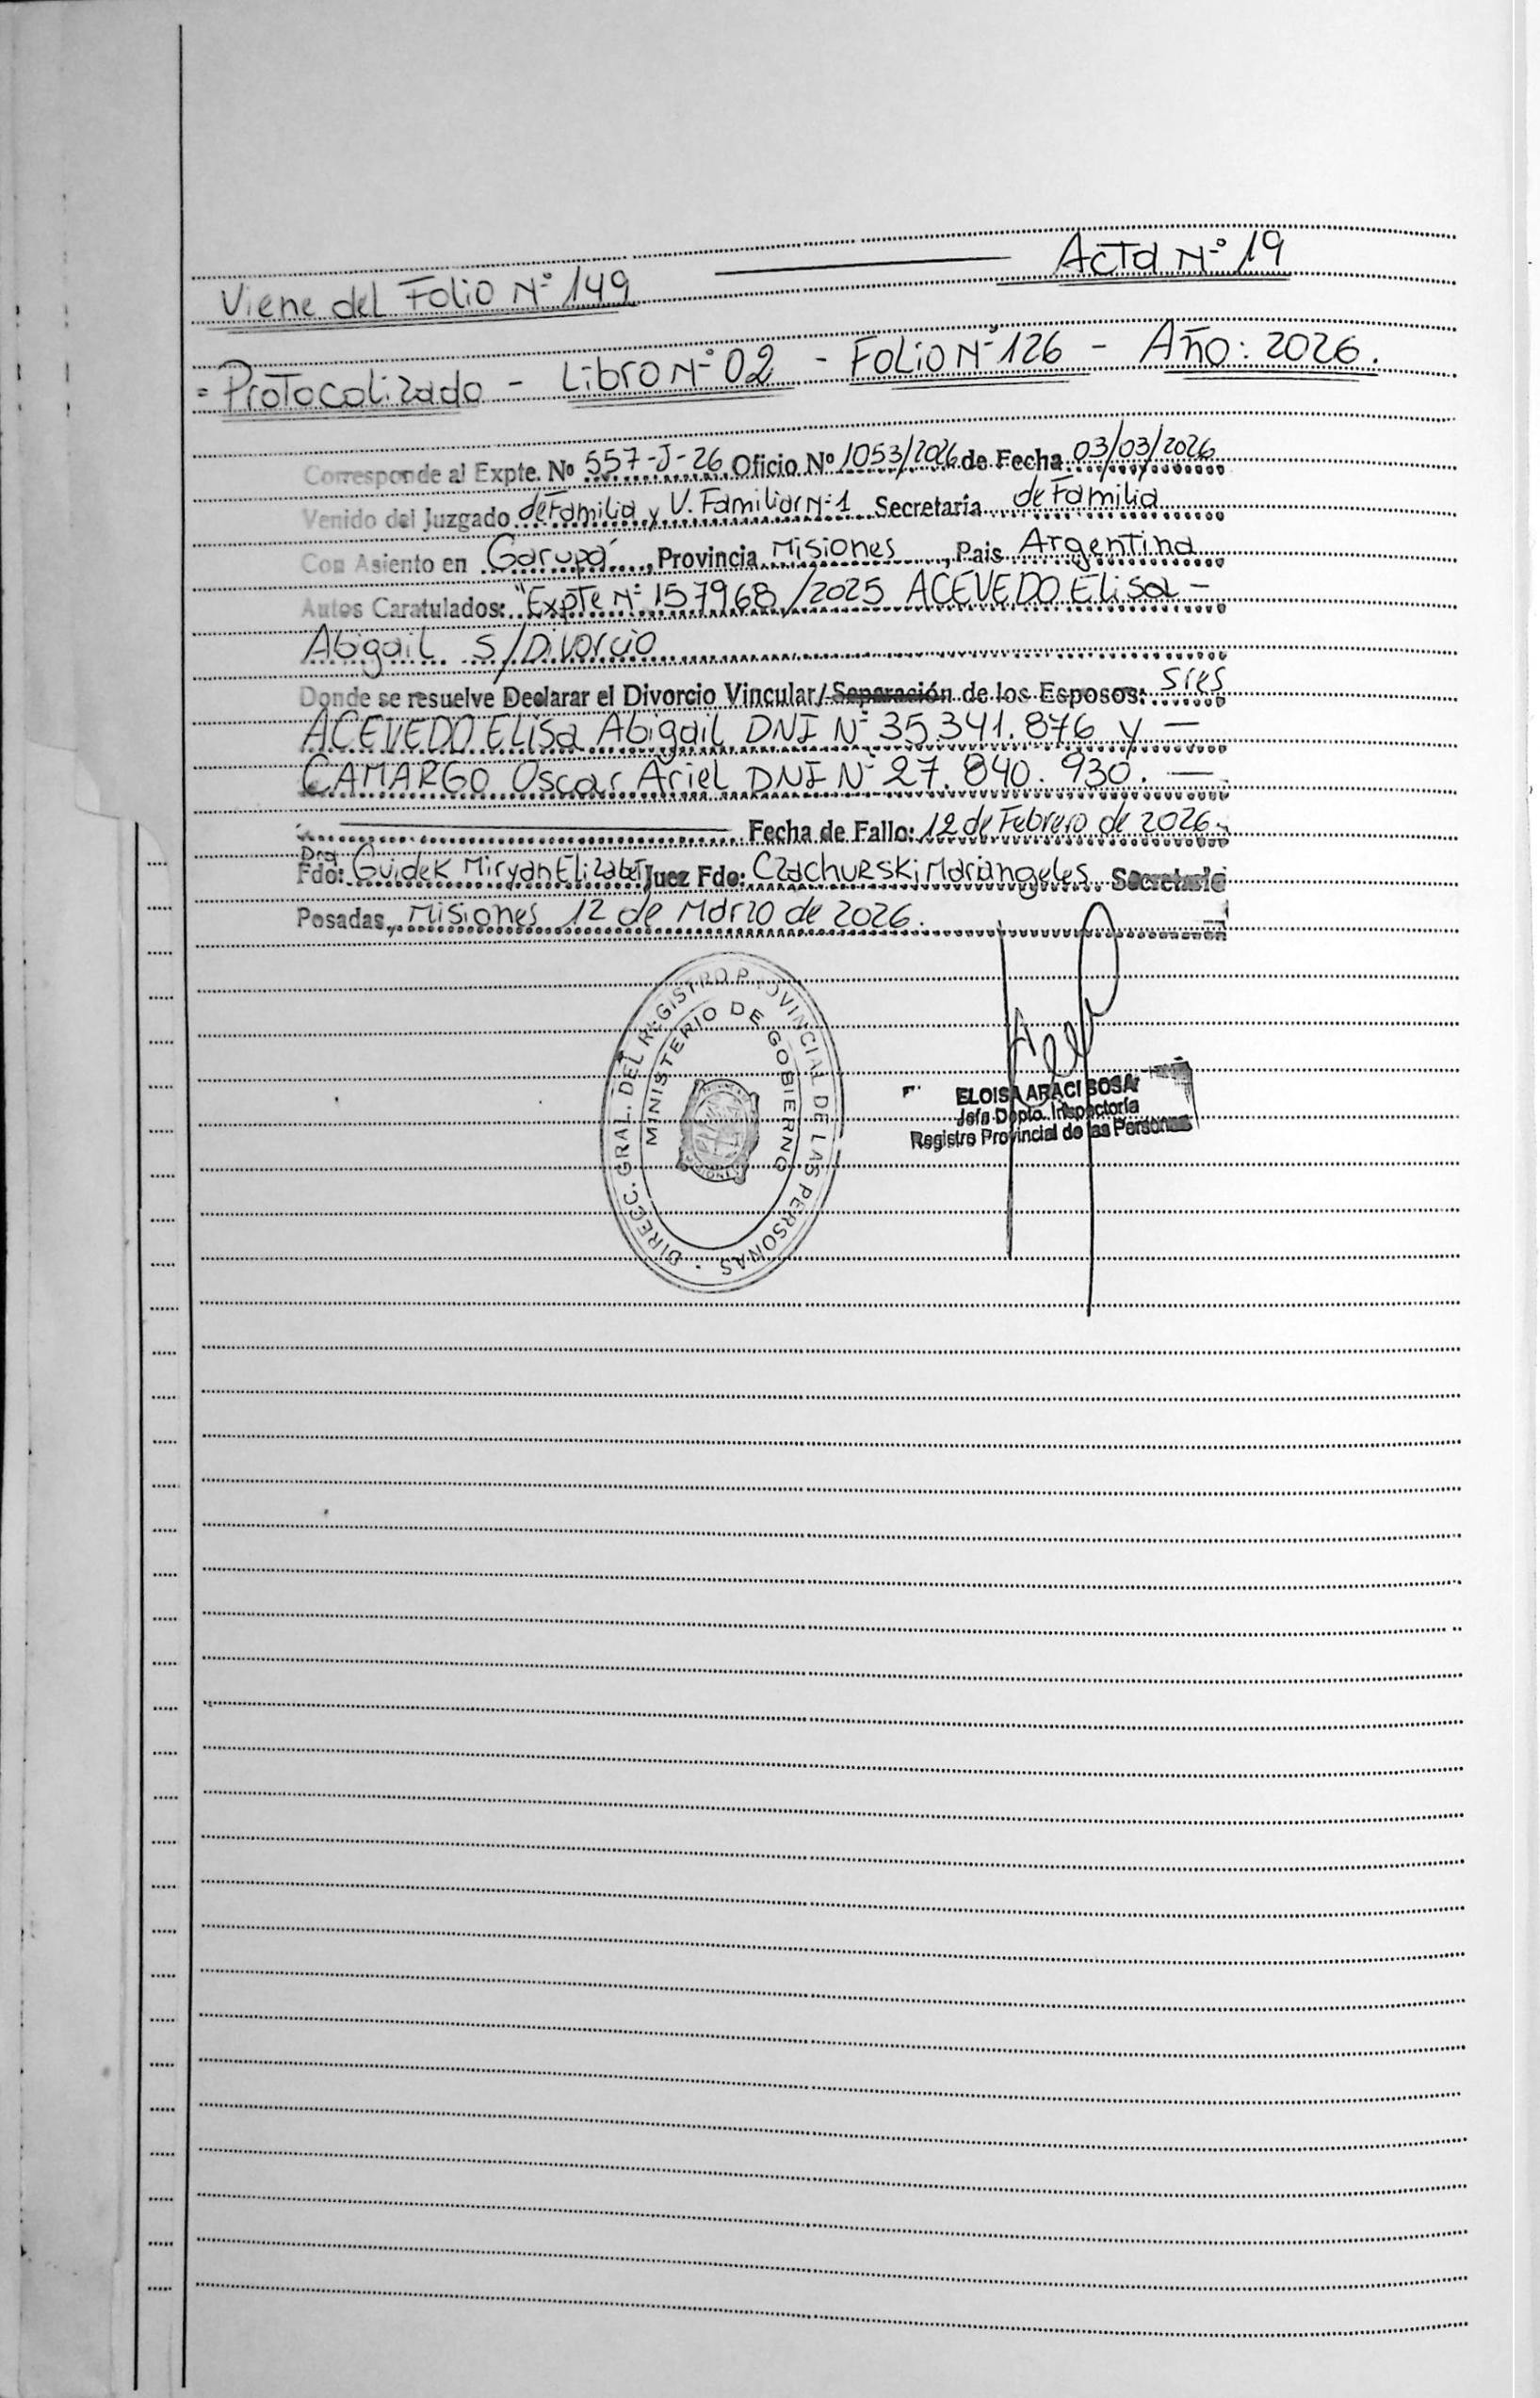 Acta Nº 19
Viene del Folio Nº 149
= Protocolizado - Libro Nº 02 - Folio Nº 126 - Año: 2026.
Corresponde al Expte. Nº 557-J-26 Oficio Nº 1053/2026 de Fecha 03/03/2026
Venido del Juzgado de Familia y V. Familiar Nº 1 Secretaría de Familia
Con Asiento en Garupá, Provincia Misiones, Pais Argentina
Autos Caratulados: "Expte Nº 157968/2025 ACEVEDO Elisa -
Abigail S/Divorcio
Donde se resuelve Declarar el Divorcio Vincular/ Separación de los Esposos: Sres
ACEVEDO Elisa Abigail DNI Nº 35.341.876 y —
CAMARGO Oscar Ariel DNI Nº 27.840.930. —
Fecha de Fallo: 12 de Febrero de 2026.
Dra
Fdo: Guidek Miryan Elizabet Juez Fdo: Czachurski Mariangeles Secretario
Posadas, Misiones 12 de Marzo de 2026.
DIRECC. GRAL. DEL REGISTRO PROVINCIAL DE LAS PERSONAS
MINISTERIO DE GOBIERNO
MISIONES
ELOISA ARACI SOSA
Jefa Depto. Inspectoría
Registro Provincial de las Personas